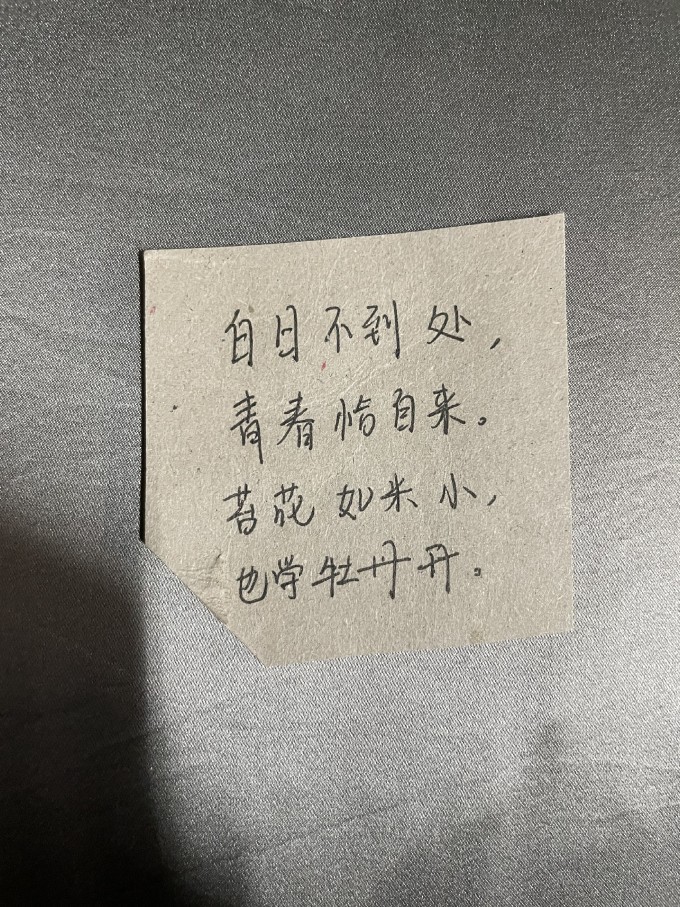 白日不到处，
青春恰自来。
苔花如米小，
也学牡丹丹。